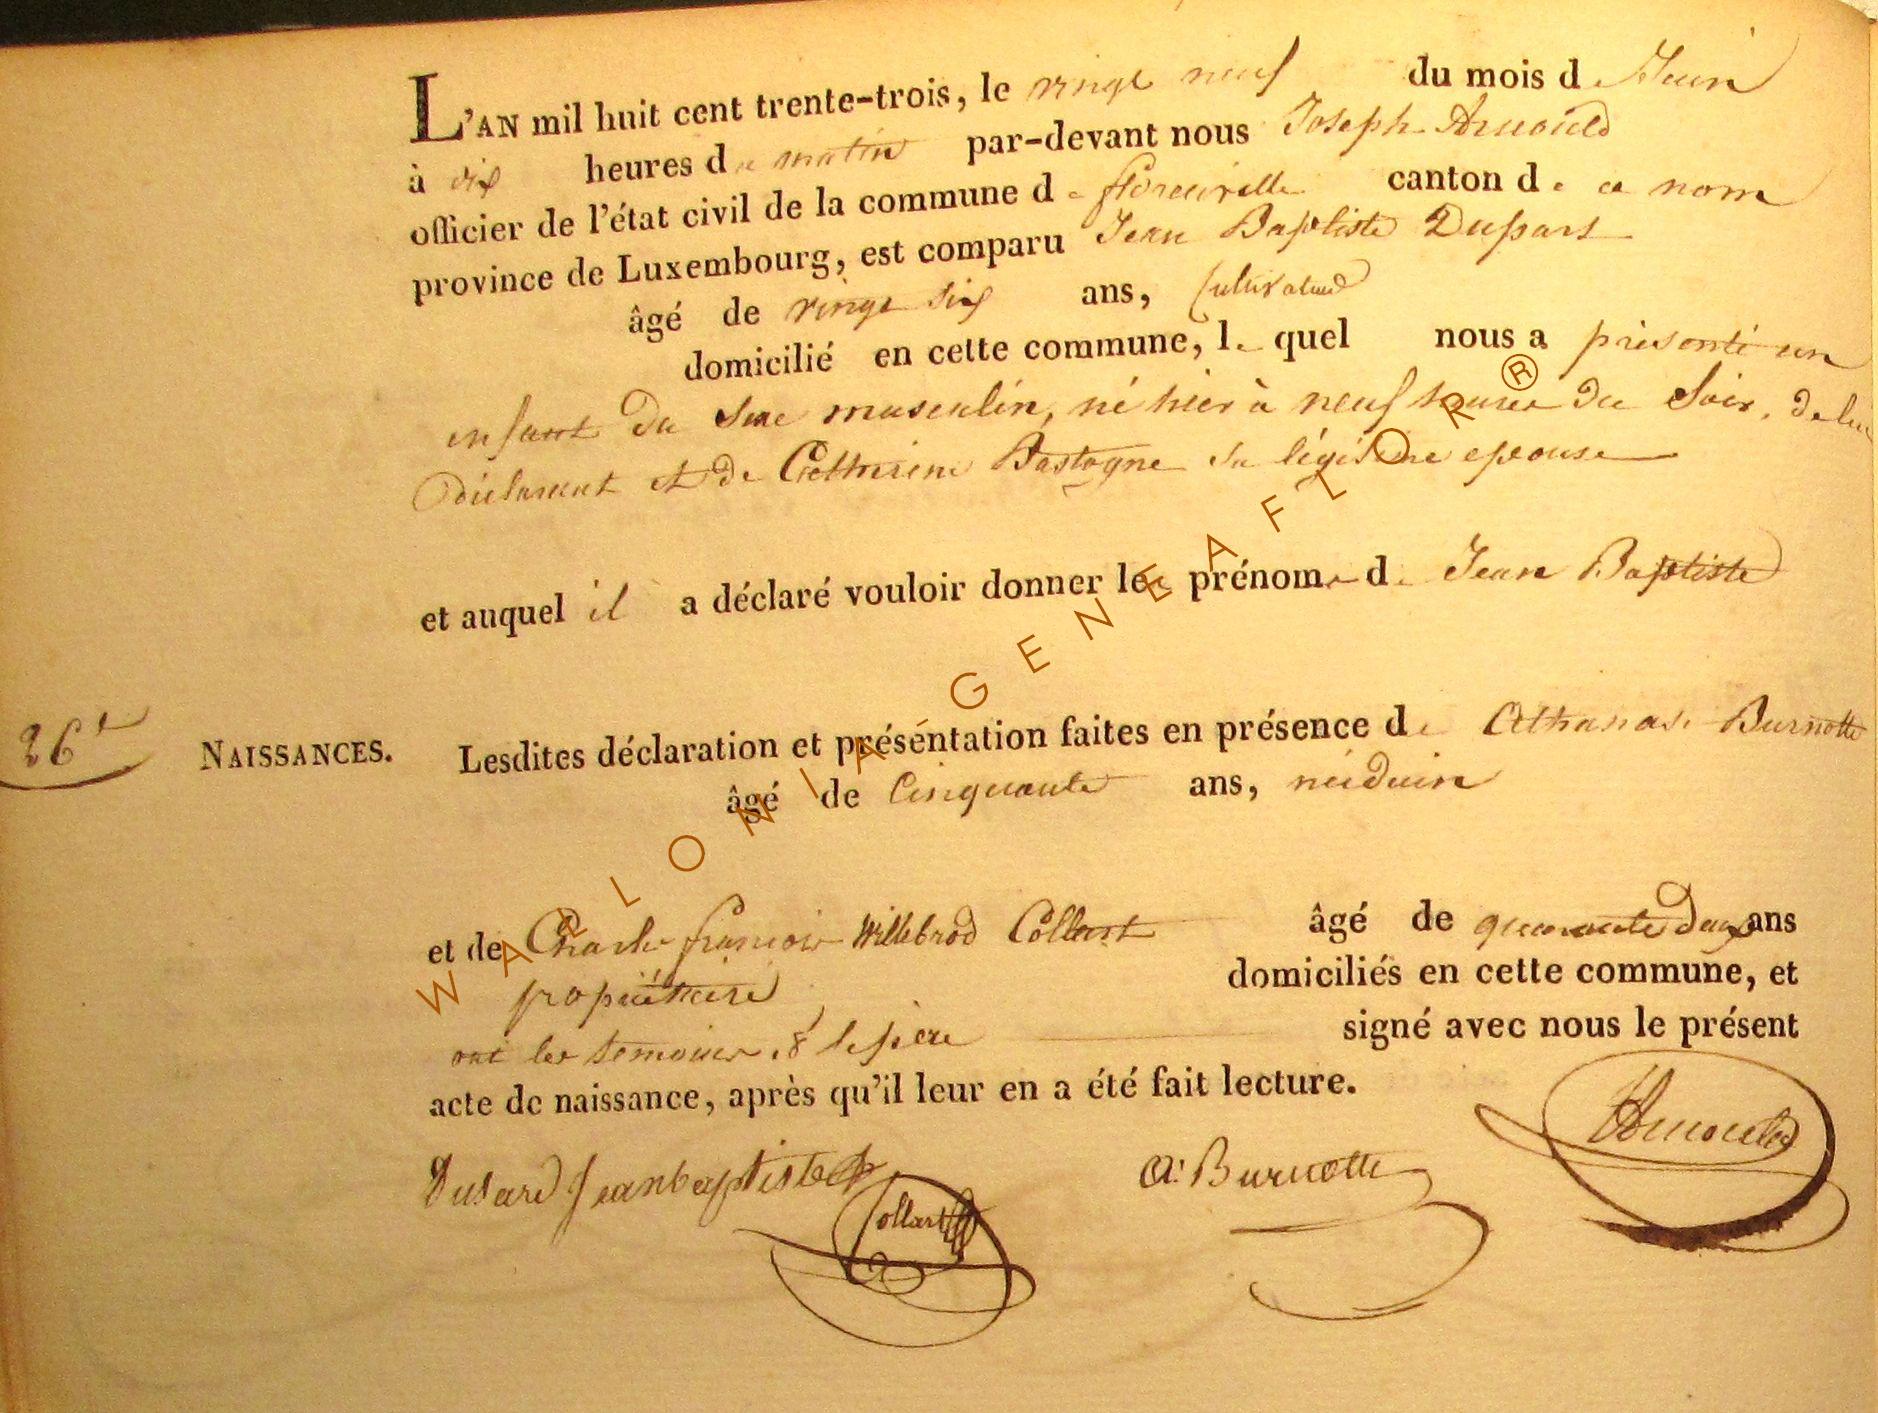 L'AN mil huit cent trente-trois, le vingt neuf du mois de Juin
à dix heures du matin par-devant nous Joseph Arnould
officier de l'état civil de la commune de florenville canton de ce nom
province de Luxembourg, est comparu Jean Baptiste
âgé de vingt six ans, Cultivateur
domicilié en cette commune, le quel nous a présenté un
enfant du sexe masculin, né hier à neuf heures du Soir, de lui
déclarant et de Catherine Bastogne sa légitime epouse
et auquel il a déclaré vouloir donner les prénoms de Jean Baptiste
26e NAISSANCES. Lesdites déclaration et présentation faites en présence de Athanase Burnotte
âgé de Cinquante ans, médecin
et de Charles françois Willebrod Collart âgé de quarante deux ans
propriétaire domiciliés en cette commune, et
ont les temoins & le père signé avec nous le présent
acte de naissance, après qu'il leur en a été fait lecture.
Jeanbaptiste Collart A: Burnotte Arnould
WALLONIA GENEAFLOR ®